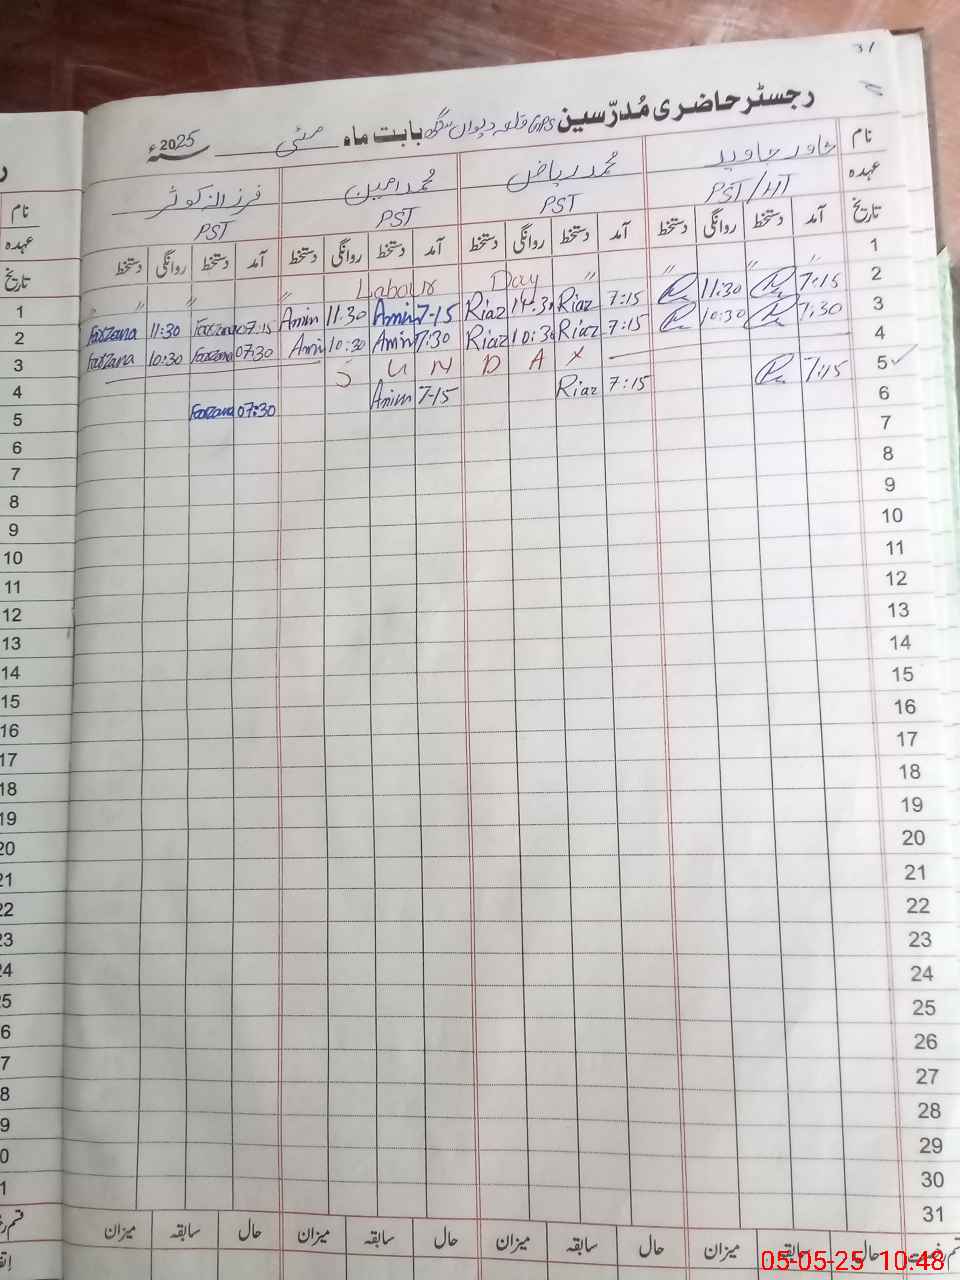 31
رجسٹر حاضری مُدرّسین GPS قلعہ دیوان سنگھ بابت ماہ مئی سنہ 2025ء
نام خاور جاوید محمد ریاض محمد امین فرزانہ کوثر
عہدہ PST/HT PST PST PST
تاریخ آمد دستخط روانگی دستخط آمد دستخط روانگی دستخط آمد دستخط روانگی دستخط آمد دستخط روانگی دستخط
1 " " " Labour Day " " "
2 7:15 11:30 7:15 Riaz 11:30 Riaz 7-15 Amin 11:30 Amin 07:15 Farzana 11:30 Farzana
3 7:30 10:30 7:15 Riaz 10:30 Riaz 7:30 Amin 10:30 Amin 07:30 Farzana 10:30 Farzana
4 S U N D A Y
5 ✓ 7:15 7:15 Riaz 7-15 Amin 07:30 Farzana
6
7
8
9
10
11
12
13
14
15
16
17
18
19
20
21
22
23
24
25
26
27
28
29
30
31
حال سابقہ میزان حال سابقہ میزان حال سابقہ میزان حال سابقہ میزان
نام
عہدہ
تاریخ
1
2
3
4
5
6
7
8
9
10
11
12
13
14
15
16
17
18
19
20
21
22
23
24
25
26
27
28
29
30
31
05-05-25 10:48